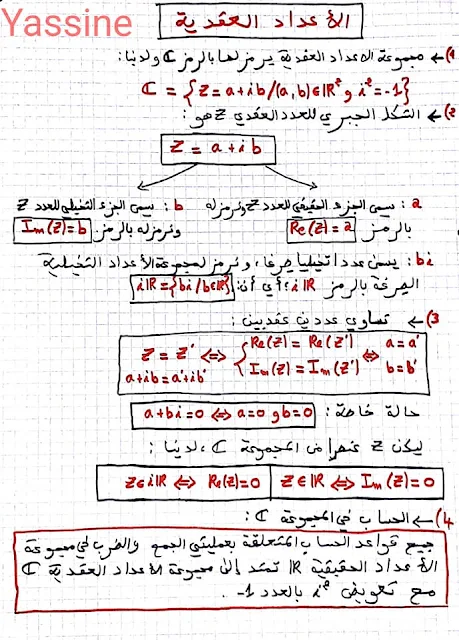 Yassine
الأعداد العقدية
1) ← مجموعة الاعداد العقدية يرمز لها بالرمز ℂ ولدينا:
ℂ = {Z = a+ib/(a,b)∈IR² و i²=-1}
2) ← الشكل الجبري للعدد العقدي Z هو:
Z = a+ib
a : يسمى الجزء الحقيقي للعدد Z ونرمز له
بالرمز Re(Z)=a
b : يسمى الجزء التخيلي للعدد Z
ونرمز له بالرمز Im(Z)=b
bi : يسمى عددا تخيليا صرفا، ونرمز لمجموعة الأعداد التخيلية
الصرفة بالرمز iIR، أي أن: iIR={bi/b∈IR}
3) ← تساوي عددين عقديين:
Z = Z' ⟺ { Re(Z) = Re(Z') ⟺ a=a'
a+ib=a'+ib' { Im(Z) = Im(Z') b=b'
حالة خاصة: a+bi=0 ⟺ a=0 و b=0
ليكن Z عنصرا من المجموعة ℂ، لدينا:
Z∈IR ⟺ Im(Z)=0
Z∈iIR ⟺ Re(Z)=0
4) ← الحساب في المجموعة ℂ:
جميع قواعد الحساب المتعلقة بعمليتي الجمع والضرب في مجموعة
الأعداد الحقيقية IR تمتد إلى مجموعة الأعداد العقدية ℂ
مع تعويض i² بالعدد 1-.